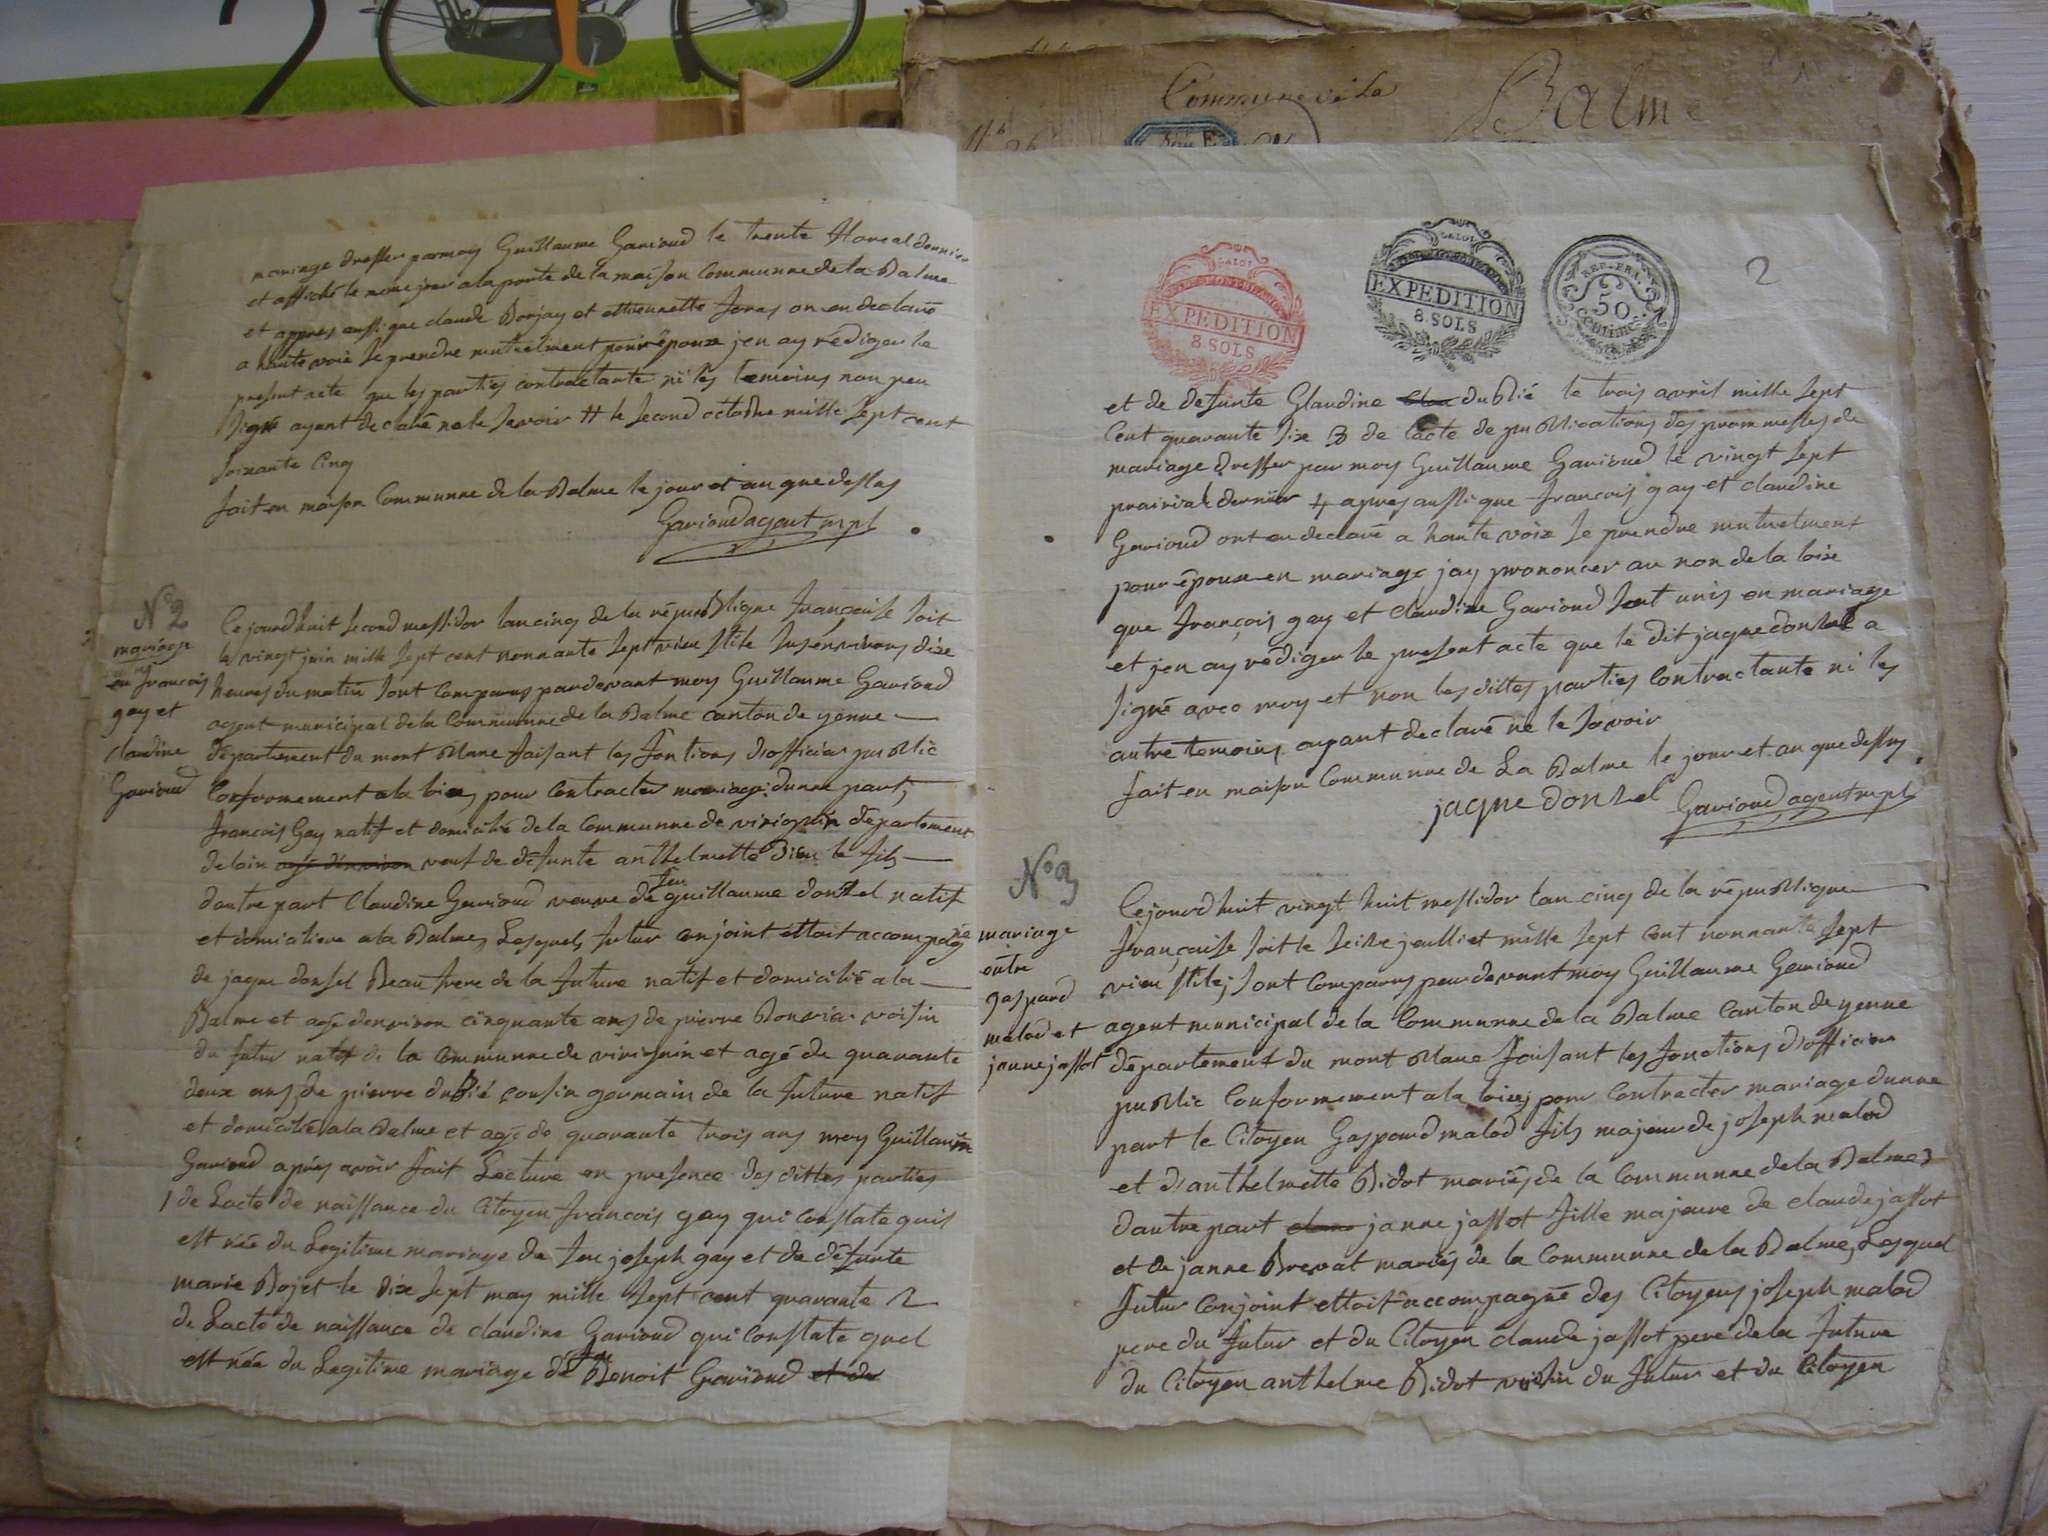 Commune de la
Balme
mariage dresser par moy Guillaume Garioud le trente floreal dernier
et affiché le meme jour a la porte de la maison Communne de la Balme
et appres aussi que claude Borjay et ettiennette on en declaré
a haute voix se prendre mutuelment pour époux jen ay rédiger le
present acte que les parties contractante ni les temoins non peu
signé ayant declaré ne le savoir # le second octobre mille sept cent
soixante cinq
fait en maison Communne de la Balme le jour et an que dessus
Garioud agent mpl
N° 2
mariage
en francois
gay et
claudine
Garioud
Ce jourdhuit second messidor lan cinq de la républigue françaisse soit
le vingt juin mille sept cent nonnante sept vieu stile sur environs dixe
heures du matin sont Comparus pardevant moy Guillaume Garioud
agent municipal de la Communne de la Balme canton de yenne
département du mont blanc faisant les fontions d'officier public
Conformement a la loix pour Contracter mariage dunne part,
francois Gay natif et domicilié de la Communne de virignin département
de lain veuf de défunte anthelmette Dieu le fils
dautre part Claudine Garioud veuve de feu guillaume donzel natif
et domiciliere a la Balme, Lesquels futur conjoint ettoit accompagné
de jaque donsel Beau frere de la future natif et domicilié a la
Balme et agé denviron cinquante ans de pierre voisin
du futur natif de la Communne de virignin et agé de quarante
deux ans, de pierre dubié cousin germain de la future natif
et domicilié a la Balme et agé de quarante trois ans moy Guillaume
Garioud aprés avoir fait Lecture en presence des dittes parties
1 de Lacte de naissance du Citoyen francois gay qui constate quil
est née du Legitime mariage de feu joseph gay et de défunte
marie Bojet le dix sept may mille sept cent quarante 2
de Lacte de naissance de claudine Garioud qui constate quel
est née du Legitime mariage de feu Benoit Garioud et de
EXPEDITION
8 SOLS
EXPEDITION
8 SOLS
REP. FRA.
50
CENTIMES
2
et de defunte Glaudine dubié le trois avril mille sept
Cent quarante six 3 de lacte de publications des prommesses de
mariage dresser par moy Guillaume Garioud le vingt sept
prairial dernier 4 apres aussi que francois gay et claudine
Garioud ont en declaré a haute voix se prendre mutuelment
pour époux en mariage jay prononcer au non de la loix
que francois gay et claudine Garioud sont unis en mariage
et jen ay rédiger le present acte que le dit jaque donzel a
signé avec moy et non les dittes parties Contractante ni les
autre temoins ayant declaré ne le savoir
fait en maison Communne de La Balme le jour et an que dessus
jaque donzel Garioud agent mpl
N° 3
mariage
entre
gaspard
malod et
janne jassot
Ce jourdhuit vingt huit messidor lan cinq de la républigue
françaisse soit le seize jeulliet mille sept cent nonnante sept
vieu stile, sont Comparus pardevant moy Guillaume Garioud
agent municipal de la Communne de la Balme Canton de yenne
département du mont blanc faisant les fonctions d'officier
public Conformement a la loix, pour Contracter mariage dunne
part le Citoyen Gaspard malod fils majeur de joseph malod
et d'anthelmette Bidot mariés de la Communne de la Balme
dautre part janne jassot fille majeure de claude jassot
et de janne Brevat mariés de la Communne de la Balme, Lesquel
futur Conjoint ettoit accompagné des Citoyens joseph malod
pere du futur et du Citoyen claude jassot pere de la future
du Citoyen anthelme Bidot voisin du futur et du Citoyen